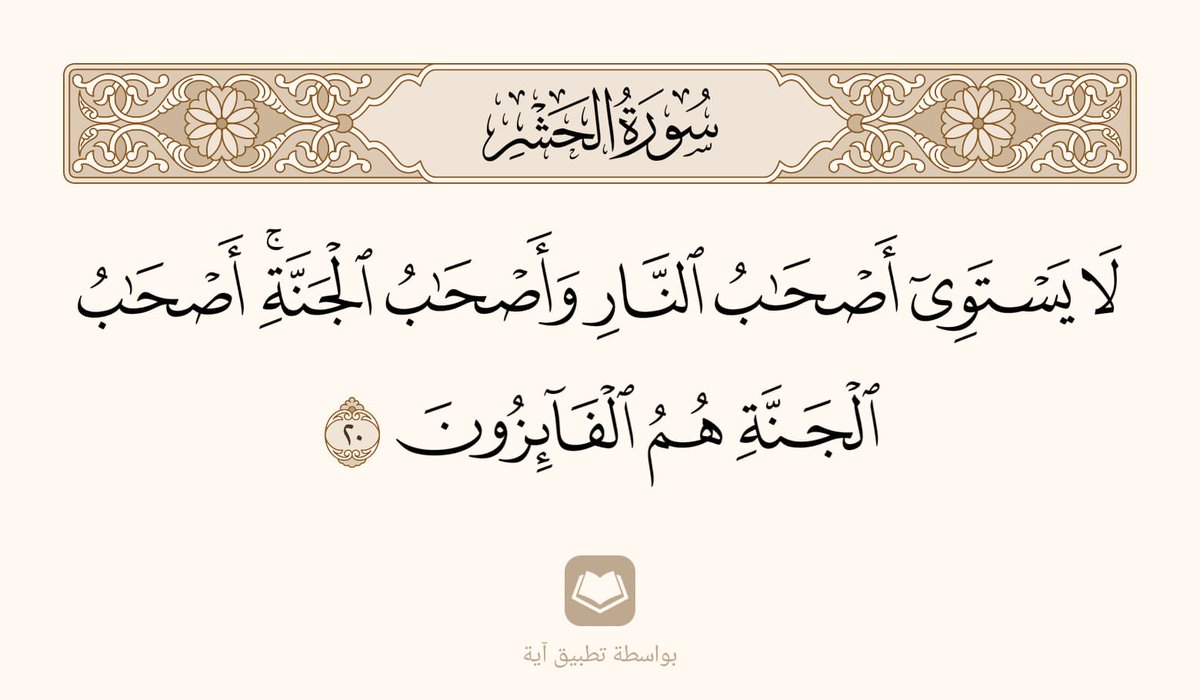 سُورَةُ الحَشْرِ
لَا يَسْتَوِىٓ أَصْحَـٰبُ ٱلنَّارِ وَأَصْحَـٰبُ ٱلْجَنَّةِ ۚ أَصْحَـٰبُ
ٱلْجَنَّةِ هُمُ ٱلْفَآئِزُونَ ٢٠
بواسطة تطبيق آية